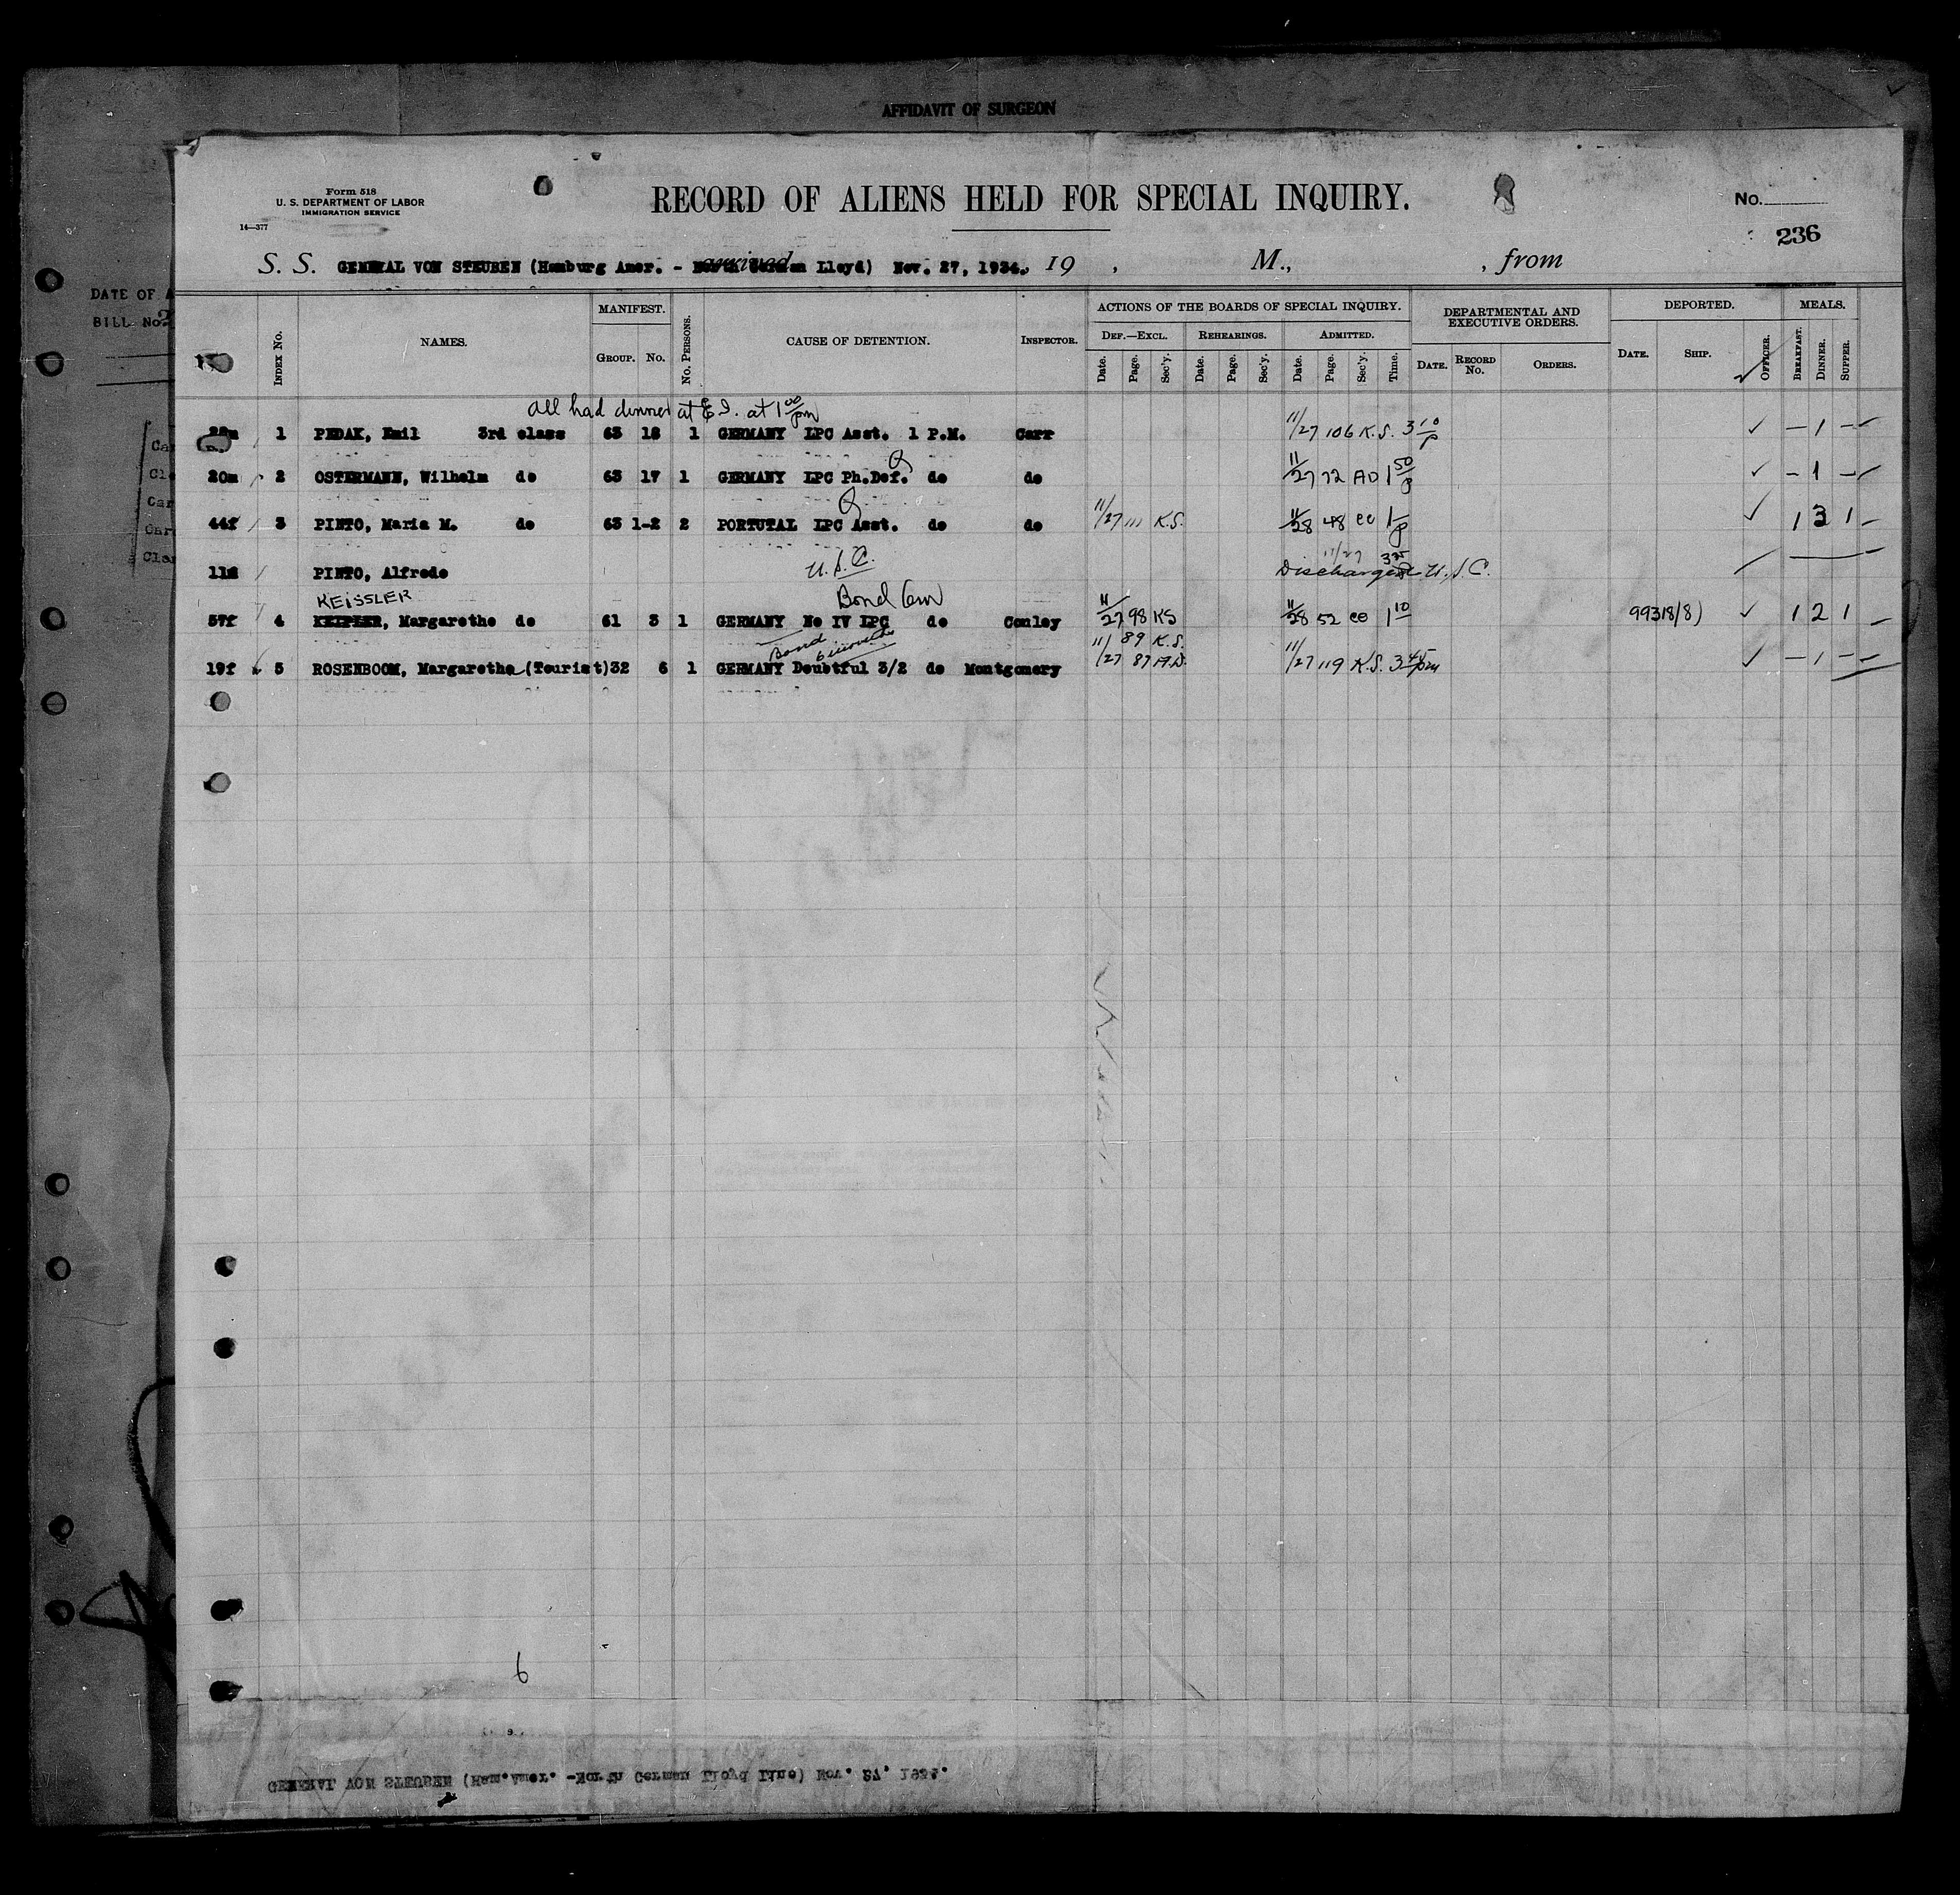 AFFIDAVIT OF SURGEON
Form 518
U. S. DEPARTMENT OF LABOR
IMMIGRATION SERVICE
14—377
RECORD OF ALIENS HELD FOR SPECIAL INQUIRY.
No.
236
S. S. GENERAL VON STEUBEN (Hamburg Amer. - North German Lloyd) arrived Nov. 27, 1934., 19 , M., , from
DATE OF A
BILL No. 2
INDEX No. NAMES. MANIFEST. GROUP. No. No. PERSONS. CAUSE OF DETENTION. INSPECTOR. ACTIONS OF THE BOARDS OF SPECIAL INQUIRY. DEF.—EXCL. Date. Page. Sec'y. REHEARINGS. Date. Page. Sec'y. ADMITTED. Date. Page. Sec'y. Time. DEPARTMENTAL AND EXECUTIVE ORDERS. DATE. RECORD No. ORDERS. DEPORTED. DATE. SHIP. OFFICER. MEALS. BREAKFAST. DINNER. SUPPER.
All had dinner at E I. at 1 00 pm
1 PEDAK, Emil 3rd class 63 18 1 GERMANY LPC Asst. 1 P.M. Carr 11/27 106 K.S. 3 10 p — 1 —
20m 2 OSTERMANN, Wilhelm do 63 17 1 GERMANY LPC Ph.Def. do do 11/27 72 AD 1 50 p — 1 —
44f 3 PINTO, Maria M. do 63 1-2 2 PORTUTAL LPC Asst. do do 11/27 111 K.S. 11/28 48 CO 1 p 1 3 1 —
11m PINTO, Alfredo U.S.C. 11/27 3 35 Discharged U.S.C.
KEISSLER Bond Gen
57f 4 KEIPLER, Margarethe do 61 3 1 GERMANY No IV LPC do Conley 11/27 98 KS 11/28 52 CO 1 10 99318/8) 1 2 1 —
Bond 6 months 11/27 89 K.S.
19f 5 ROSENBOOM, Margaretha (Tourist) 32 6 1 GERMANY Doubtful 3/2 do Montgomery 87 A.D. 11/27 119 K.S. 3 45 pm — 1 —
6
GENERAL VON STEUBEN (Ham.Amer. -North German Lloyd Line) Nov. 27. 1934.